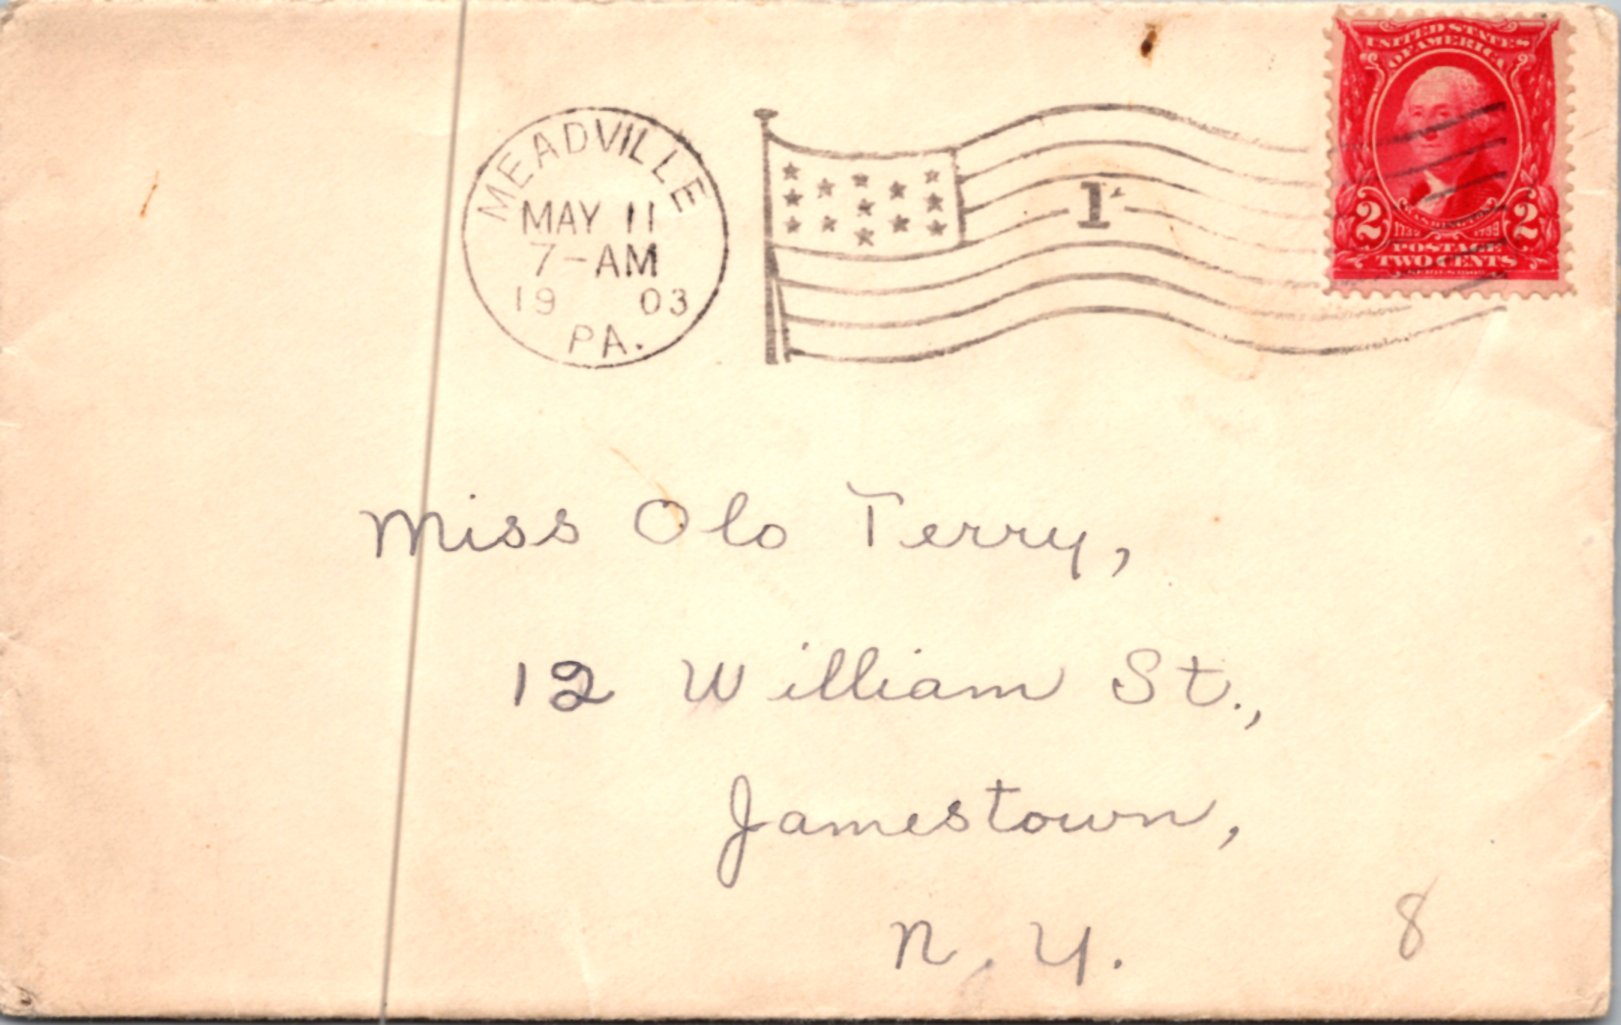 MEADVILLE
MAY 11
7-AM
19 03
PA.
1
UNITED STATES
OF AMERICA
2 2
POSTAGE
TWO CENTS
Miss Olo Terry,
12 William St.,
Jamestown,
N.Y.
8